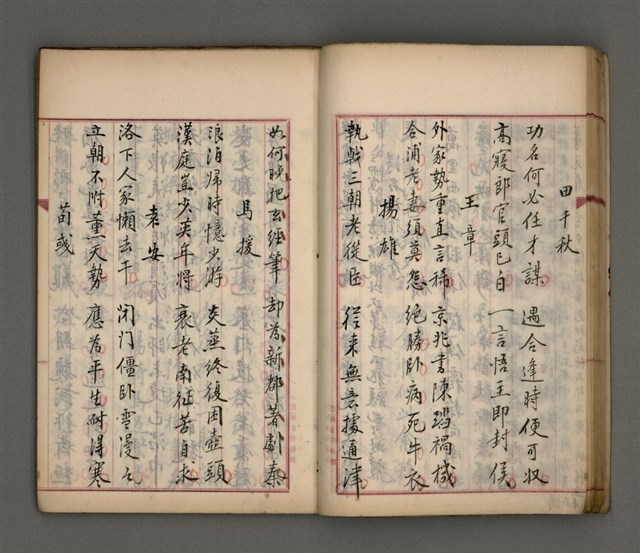 田千秋
功名何必任才謀　遇合逢時便可収
高寢郎官頭已白　一言悟主即封侯
王章
外家勢重直言稀　京兆書陳蹈禍機
合浦老妻須莫怨　絶勝卧病死牛衣
揚雄
執戟三朝老從臣　從来無意據通津
如何晚把玄經筆　却為新都著劇秦
馬援
浪泊帰時憶少游　炎蒸終復困壺頭
漢庭豈少英年將　衰老南征苦自求
袁安
洛下人家懶去干　閉门僵卧雪漫々
立朝不附薰天勢　應為平生耐得寒
荀彧